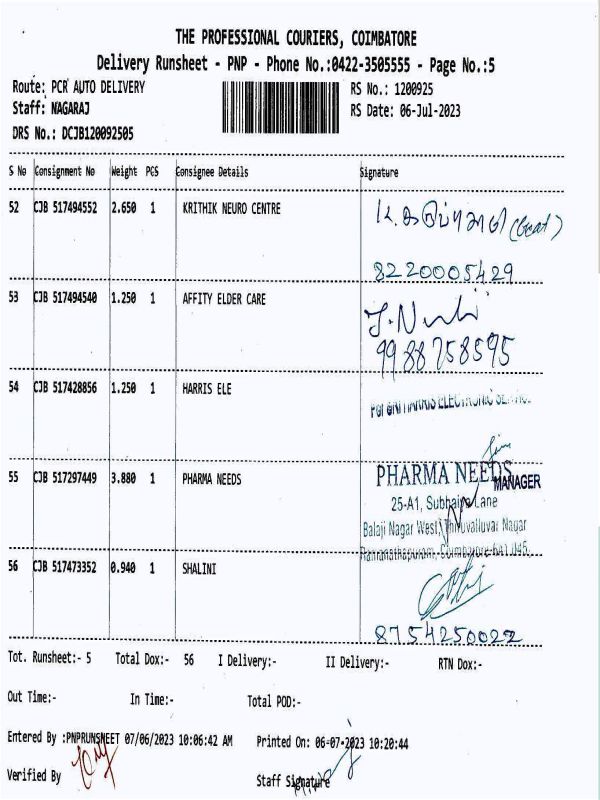 THE PROFESSIONAL COURIERS, COIMBATORE
Delivery Runsheet - PNP - Phone No.:0422-3505555 - Page No.:5
Route: PCR AUTO DELIVERY RS No.: 1200925
Staff: NAGARAJ RS Date: 06-Jul-2023
DRS No.: DCJB120092505
S No Consignment No Weight PCS Consignee Details Signature
52 CJB 517494552 2.650 1 KRITHIK NEURO CENTRE
8220005429
53 CJB 517494540 1.250 1 AFFITY ELDER CARE
9988758595
54 CJB 517428856 1.250 1 HARRIS ELE
For SRI HARRIS ELECTRONIC
55 CJB 517297449 3.880 1 PHARMA NEEDS
PHARMA NEEDS
MANAGER
25-A1, Subbaiya Lane
Balaji Nagar West, Thiruvalluvar Nagar
Ramanathapuram, Coimbatore-641 045.
56 CJB 517473352 0.940 1 SHALINI
8754250022
Tot. Runsheet:- 5 Total Dox:- 56 I Delivery:- II Delivery:- RTN Dox:-
Out Time:- In Time:- Total POD:-
Entered By :PNPRUNSHEET 07/06/2023 10:06:42 AM Printed On: 06-07-2023 10:20:44
Verified By Staff Signature